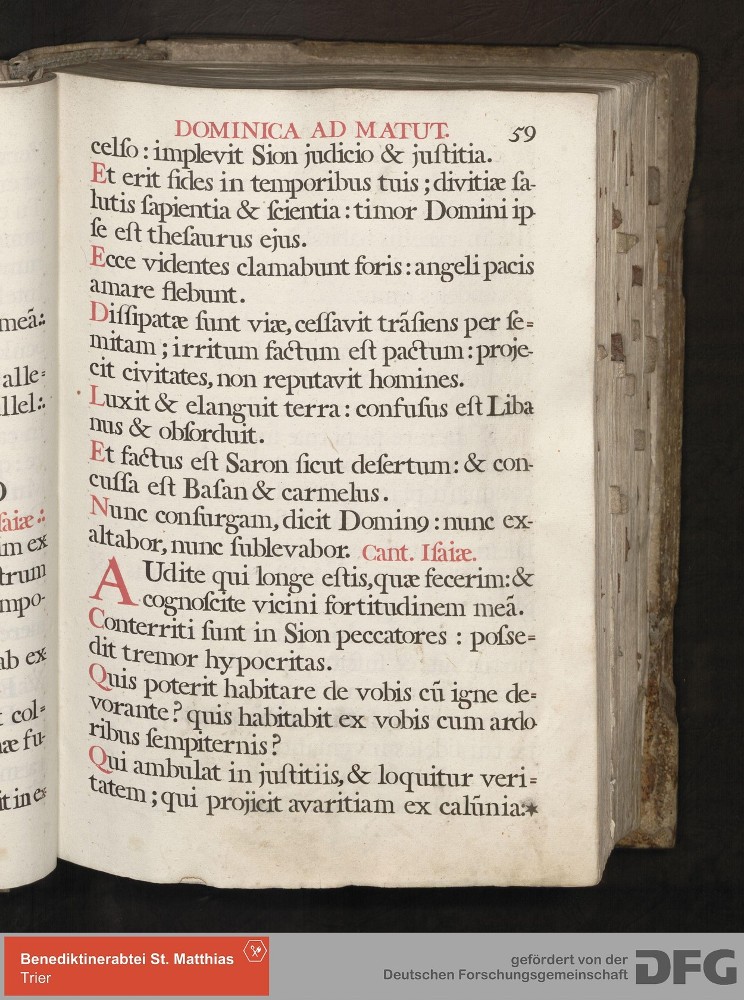 DOMINICA AD MATUT. 59
celſo : implevit Sion judicio & juſtitia.
Et erit fides in temporibus tuis ; divitiæ ſa-
lutis ſapientia & ſcientia : timor Domini ip-
ſe eſt theſaurus ejus.
Ecce videntes clamabunt foris : angeli pacis
amare flebunt.
Diſſipatæ ſunt viæ, ceſſavit trãſiens per ſe=
mitam ; irritum factum eſt pactum : proje-
cit civitates, non reputavit homines.
Luxit & elanguit terra : confuſus eſt Liba
nus & obſorduit.
Et factus eſt Saron ſicut deſertum : & con-
cuſſa eſt Baſan & carmelus.
Nunc conſurgam, dicit Domin9 : nunc ex-
altabor, nunc ſublevabor. Cant. Iſaiæ.
AUdite qui longe eſtis, quæ fecerim : &
cognoſcite vicini fortitudinem meã.
Conterriti ſunt in Sion peccatores : poſse=
dit tremor hypocritas.
Quis poterit habitare de vobis cũ igne de=
vorante ? quis habitabit ex vobis cum ardo
ribus ſempiternis ?
Qui ambulat in juſtitiis, & loquitur veri=
tatem ; qui projicit avaritiam ex calũnia:*
meã:.
alle=
llel:.
ſaiæ.:
im ex
trum
mpo-
ab ex-
col=
næ fu-
it in ex
Benediktinerabtei St. Matthias
Trier
gefördert von der
Deutschen Forschungsgemeinschaft
DFG